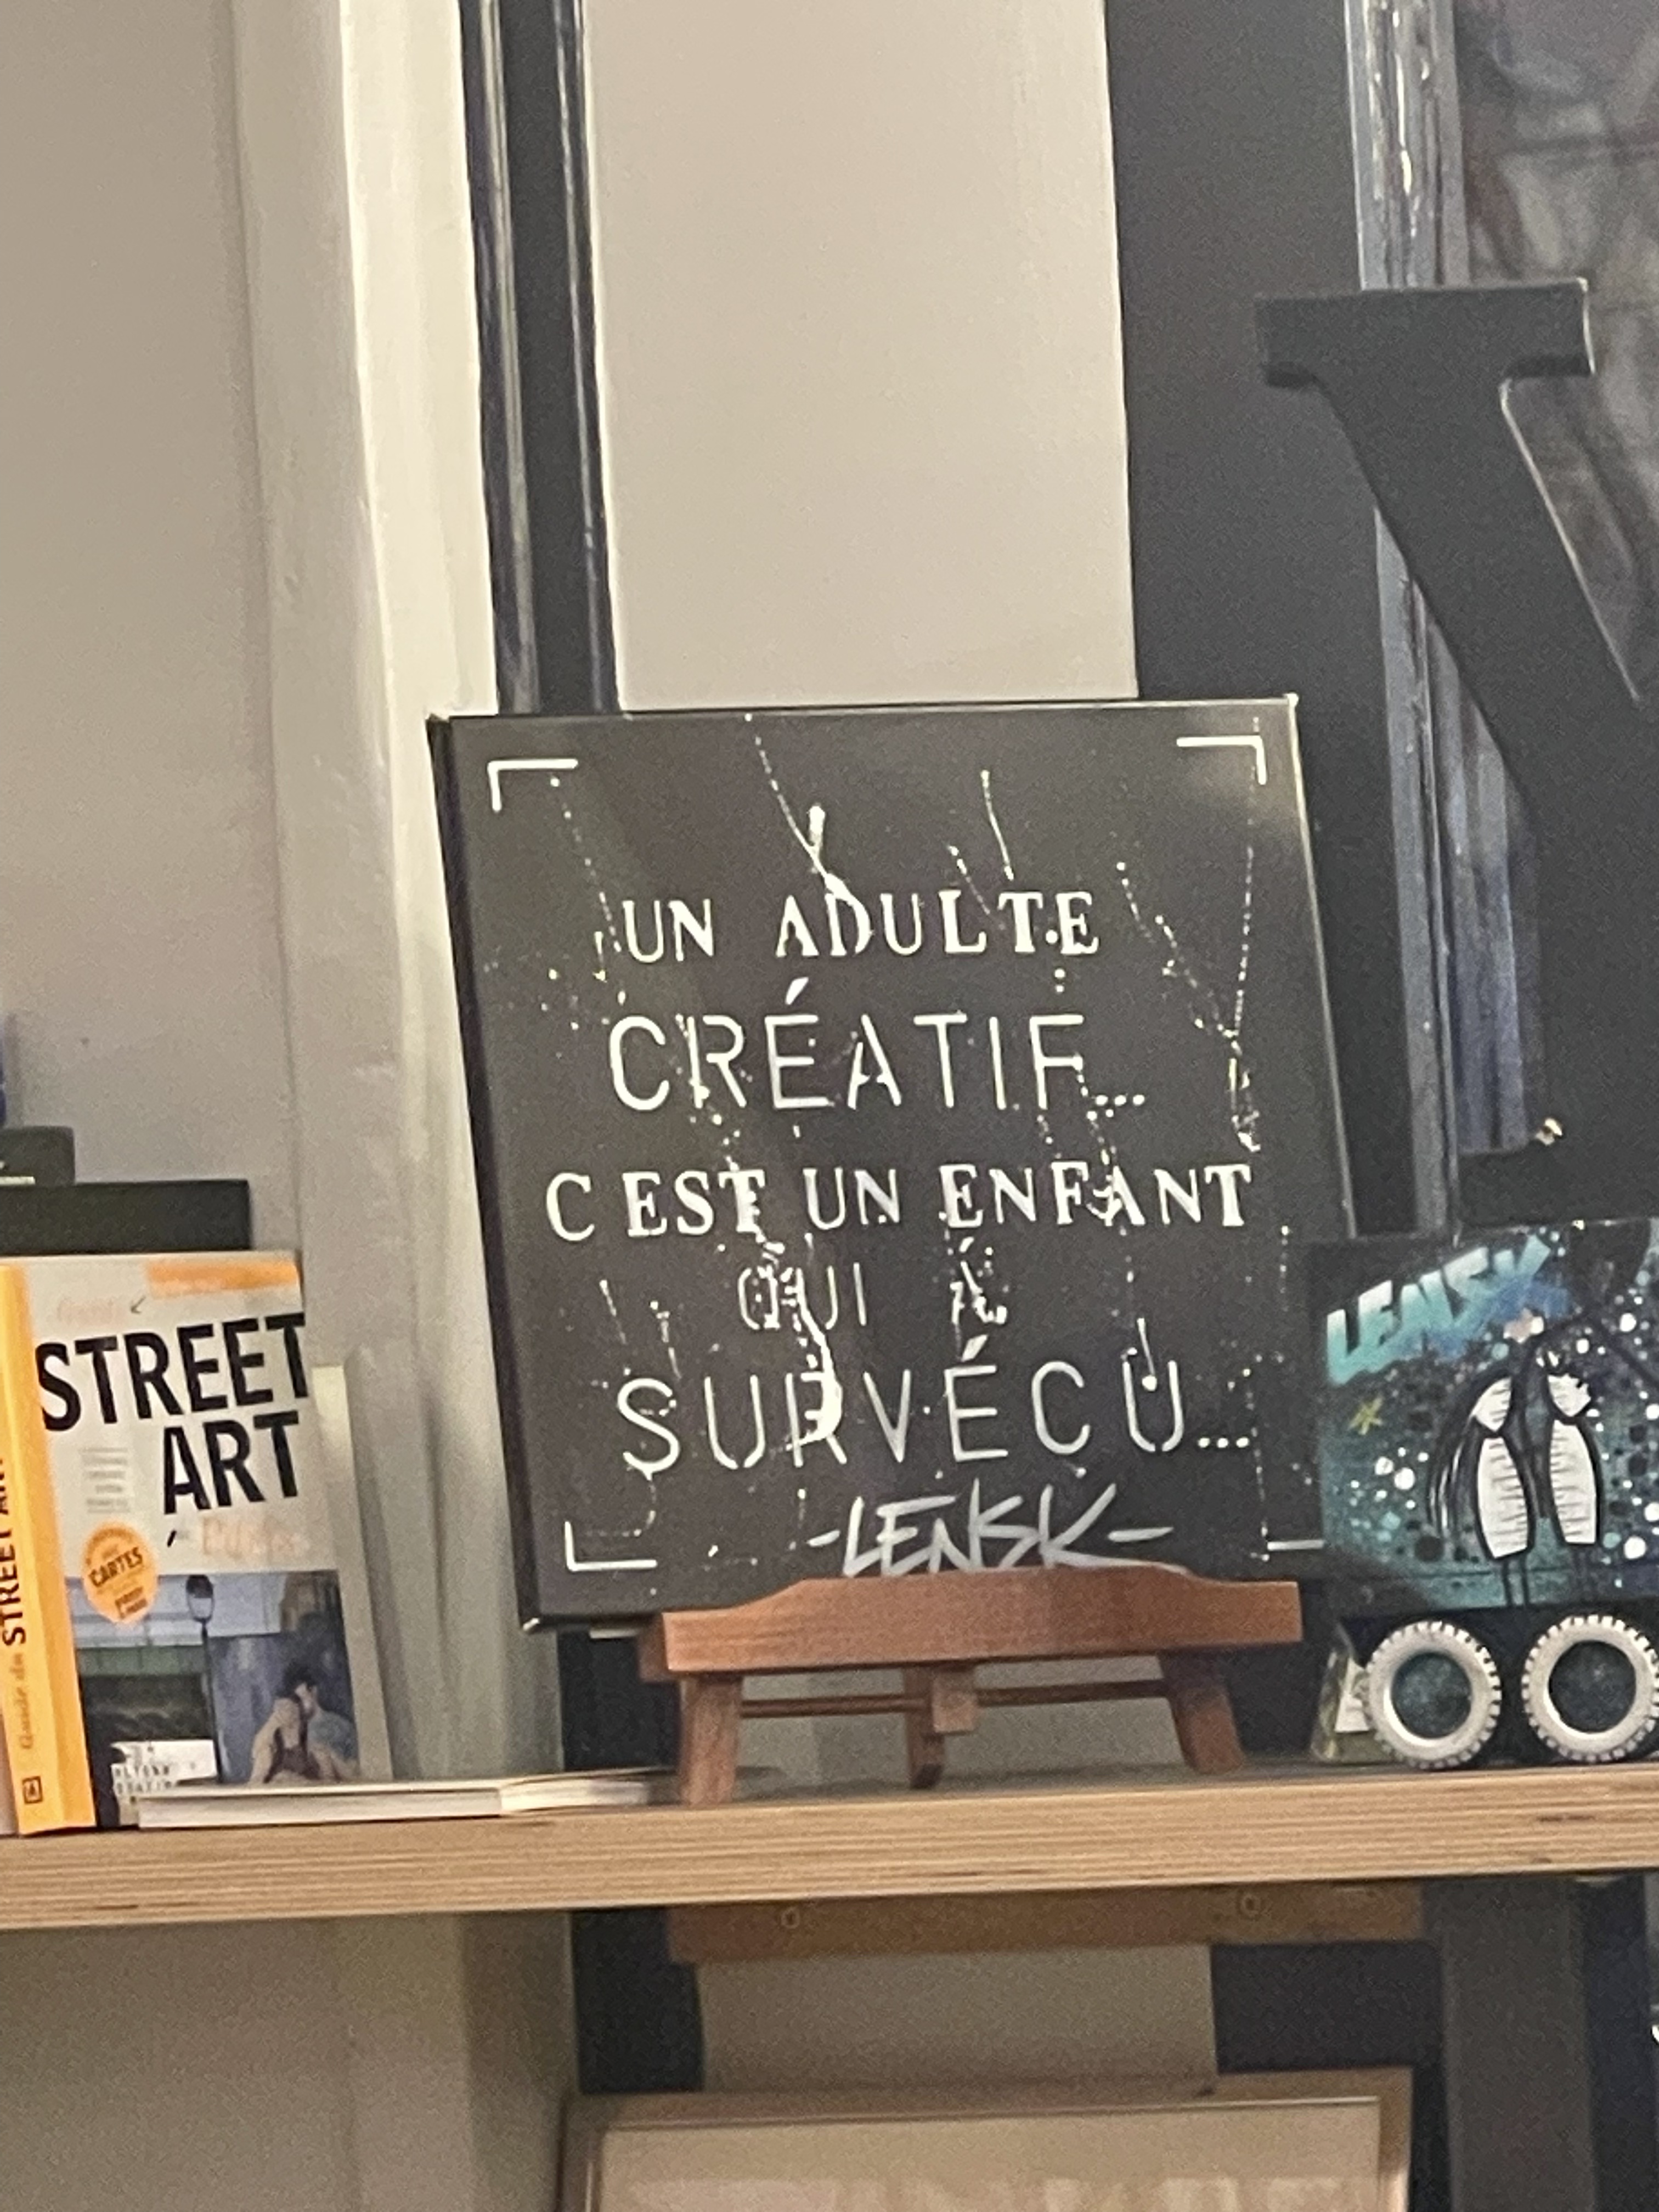 UN ADULTE
CRÉATIF...
C EST UN ENFANT
QUI À
SURVÉCU...
-LENSK-
LENSK
STREET
ART
CARTES
Guide du STREET ART